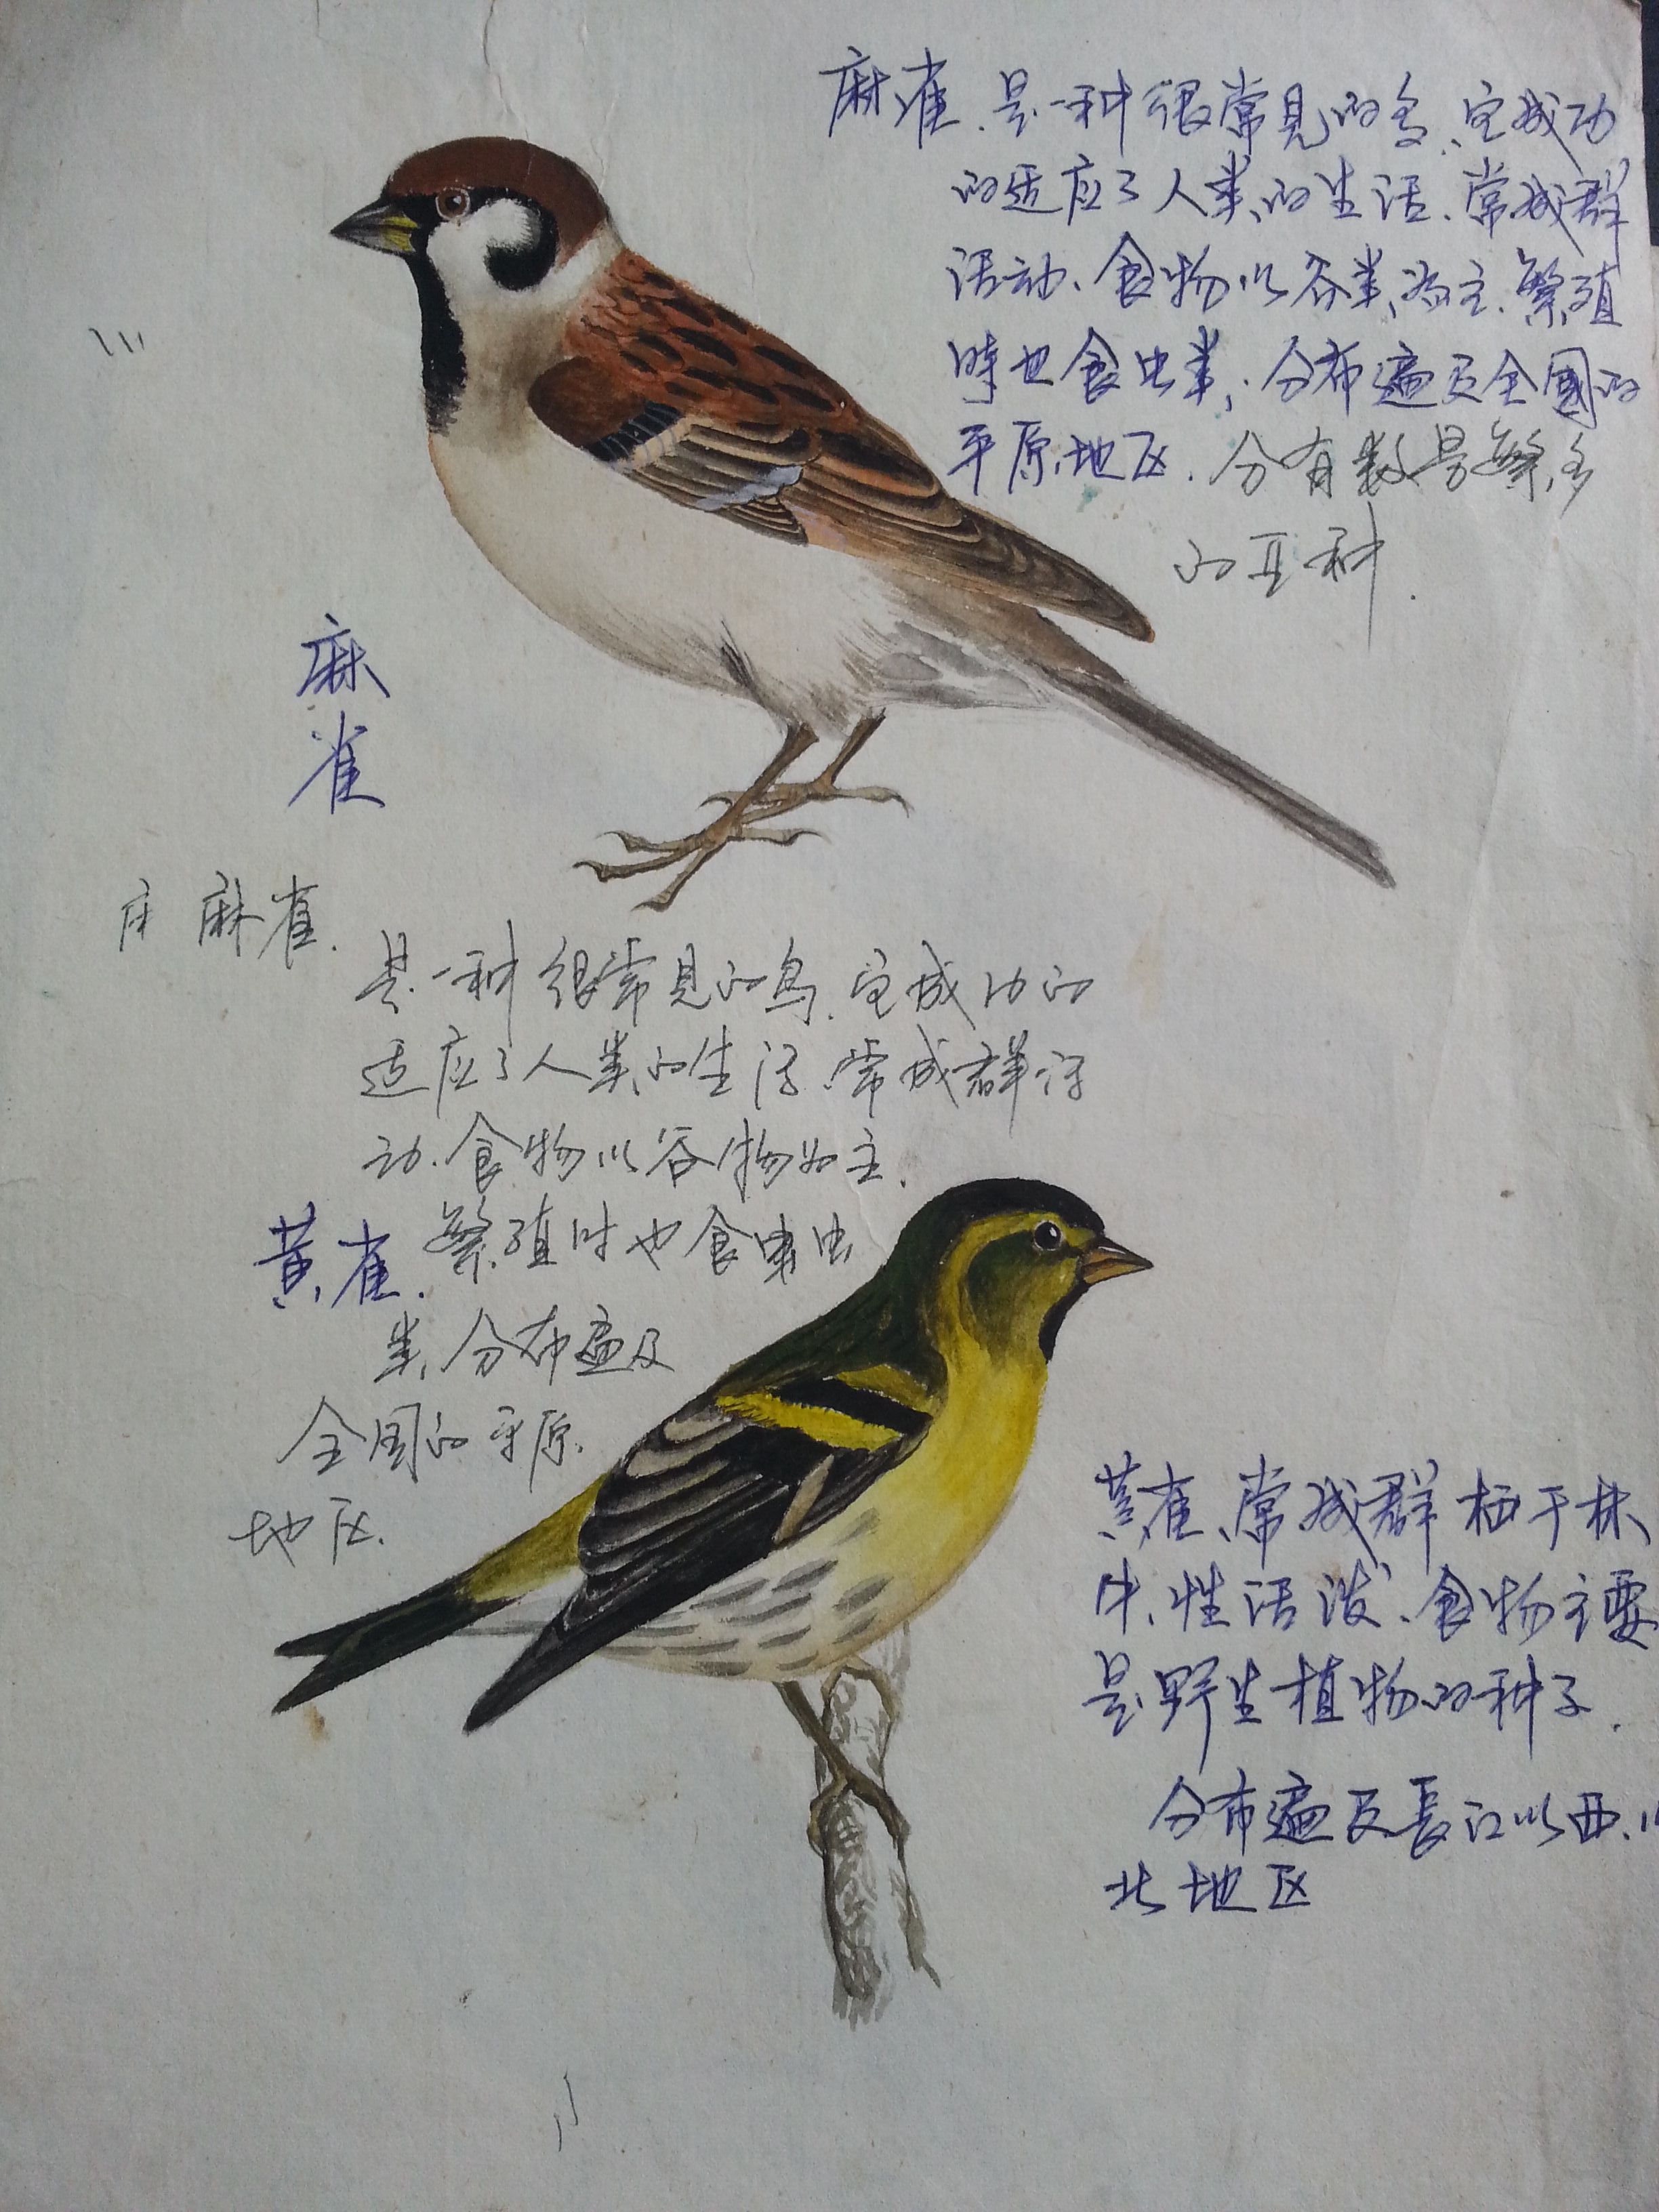 麻雀、是一种很常见的鸟、它成功
的适应了人类的生活、常成群
活动、食物以谷类为主、繁殖
时也食虫类；分布遍及全國的
平原地区、分有数量繁多
的亚种.
麻
雀
麻雀.
是一种很常见的鸟、它成功的
适应了人类的生活、常成群活
动、食物以谷物为主、
繁殖时也食虫
类、分布遍及
全国的平原
地区.
黄雀.
黄雀、常成群栖于林
中、性活泼、食物主要
是野生植物的种子.
分布遍及長江以西、以
北地区